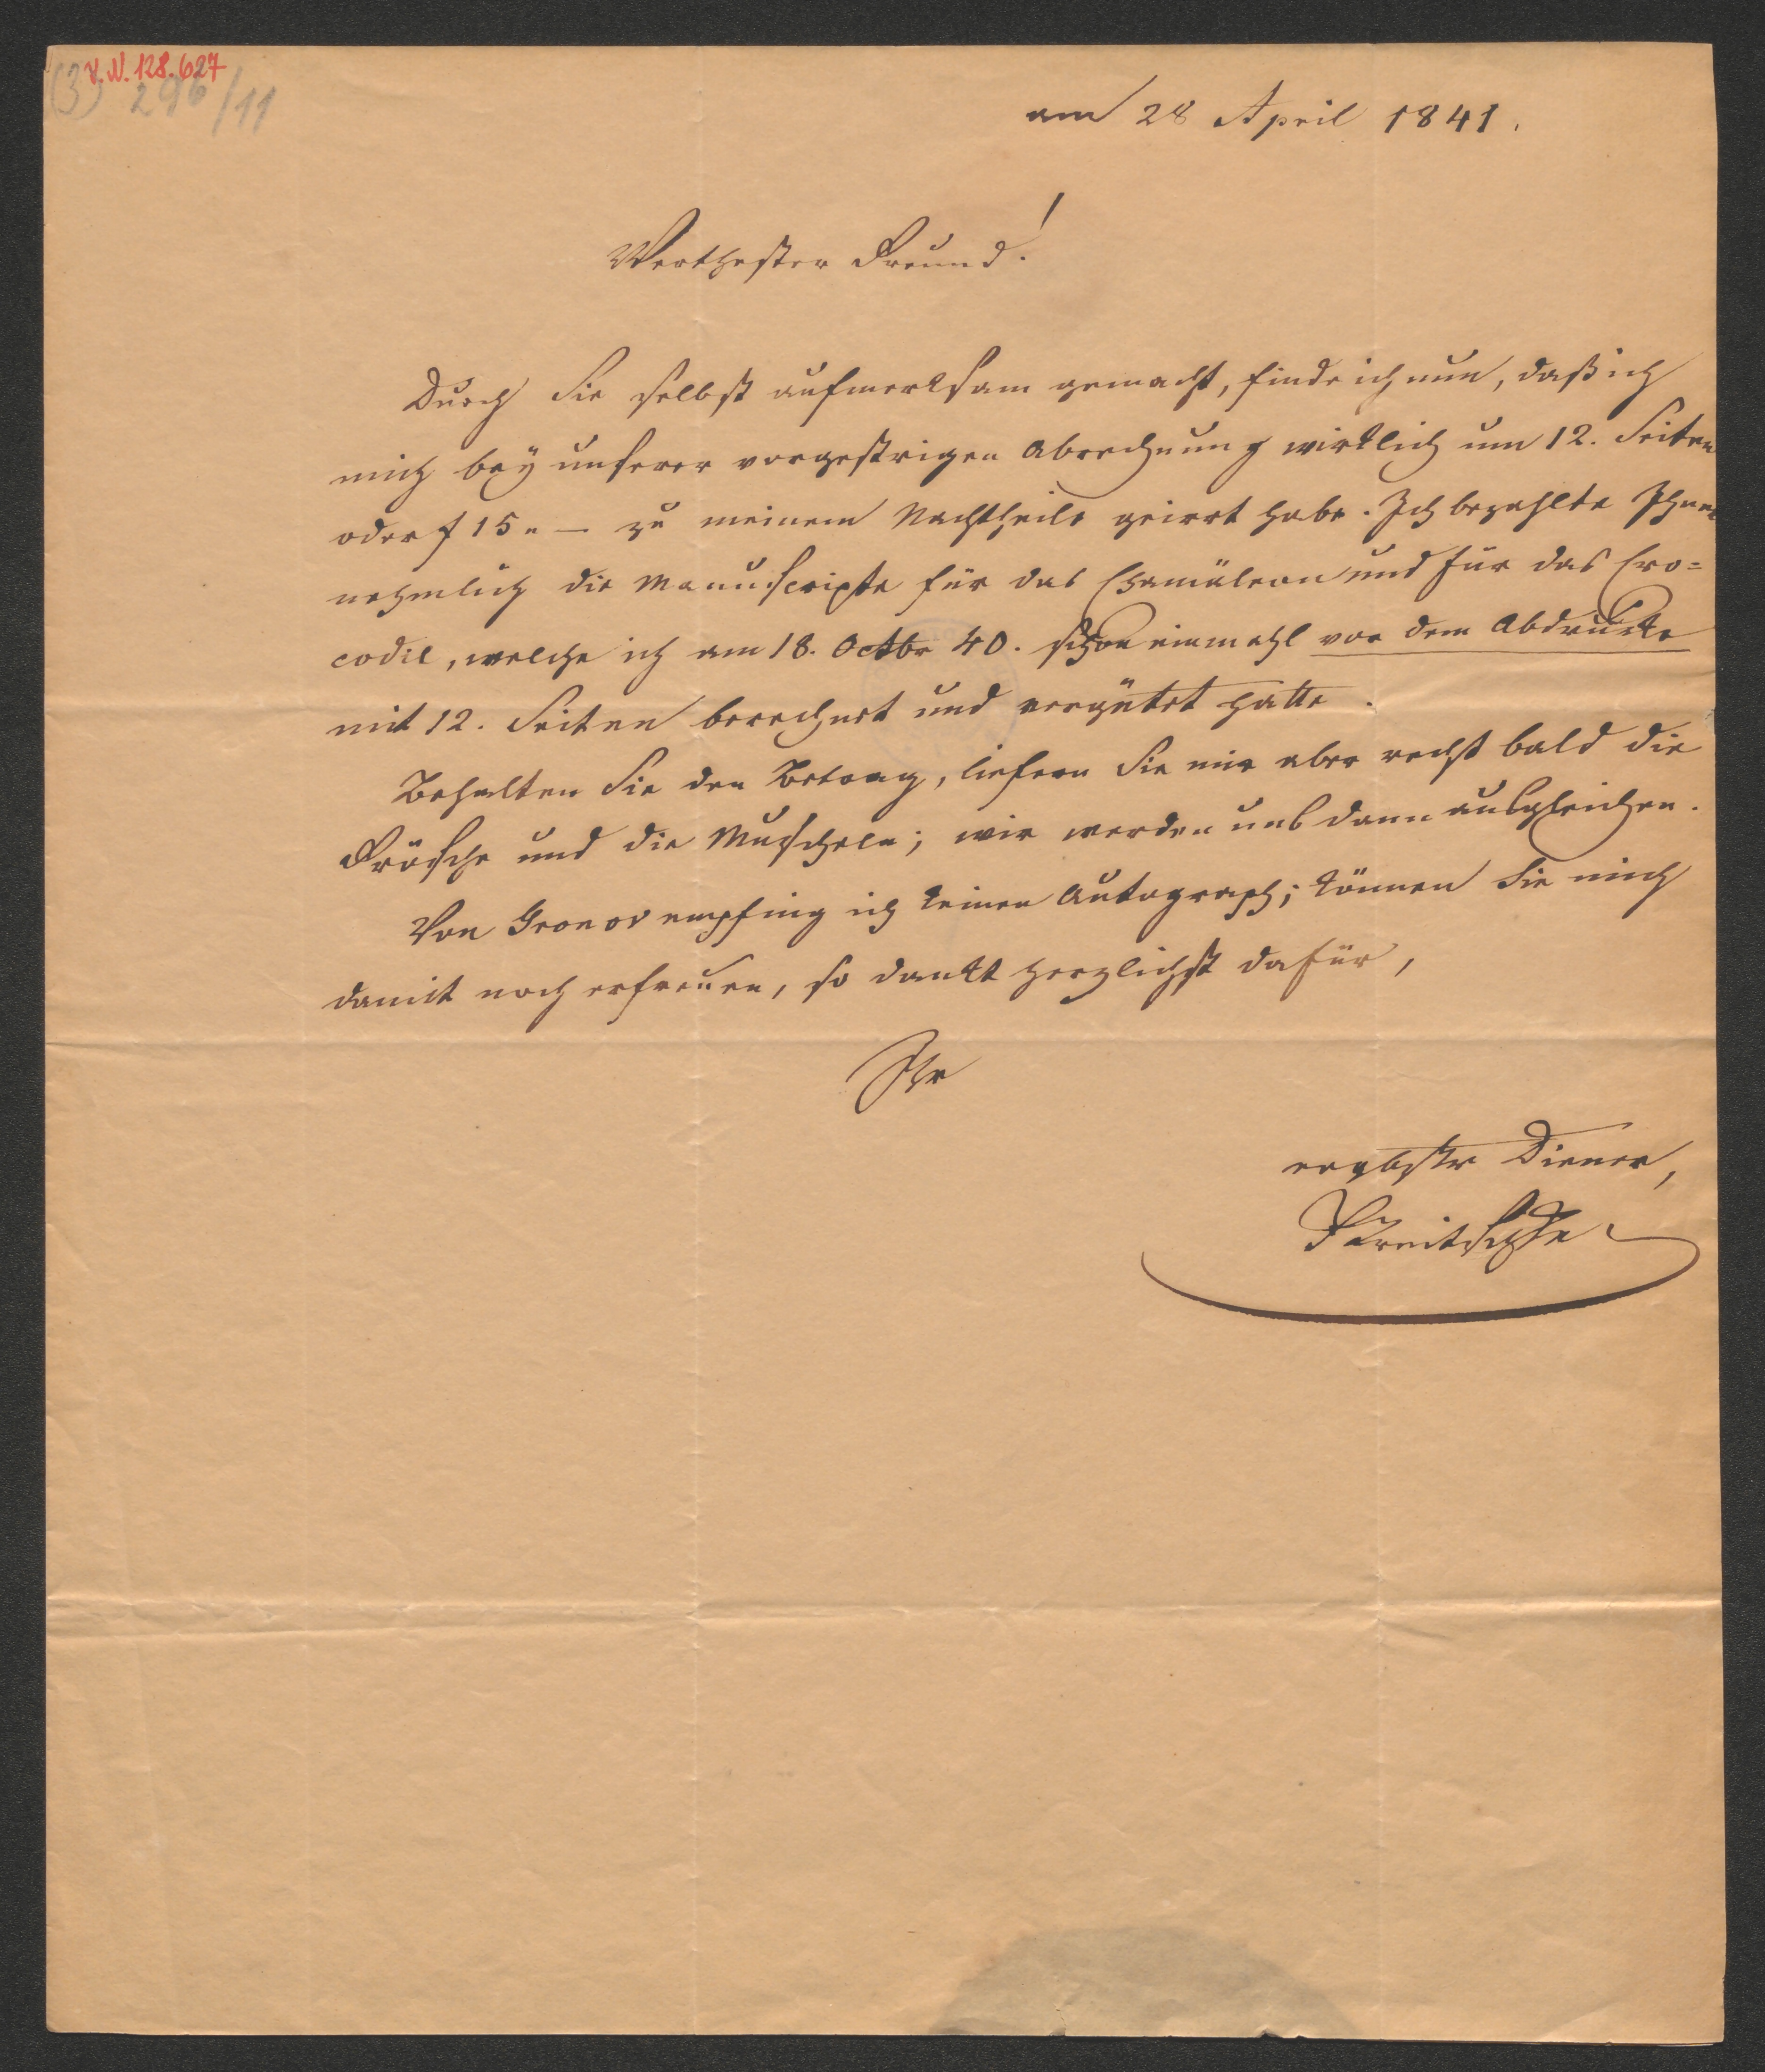 V. N. 128.627
(3) 296/11
am 28 April 1841.
Werthester Freund!
Durch Sie selbst aufmerksam gemacht, finde ich nun, daß ich
mich bey unserer vorgestrigen Abrechnung wirklich um 12. Seiten
oder f 15 „ — zu meinem Nachtheile geirrt habe. Ich bezahlte Ihnen
nehmlich die Manuscripte für das Chamäleon und für das Cro=
codil, welche ich am 18. Octbr 40. schon einmahl vor dem Abdrucke
mit 12. Seiten berechnet und vergütet hatte.
Behalten Sie den Betrag, liefern Sie mir aber recht bald die
Frösche und die Muscheln; wir werden uns dann ausgleichen.
Von Gronov empfing ich keinen Autograph; können Sie mich
damit noch erfreuen, so dankt herzlichst dafür,
Ihr
ergbstr Diener,
FTreitschke